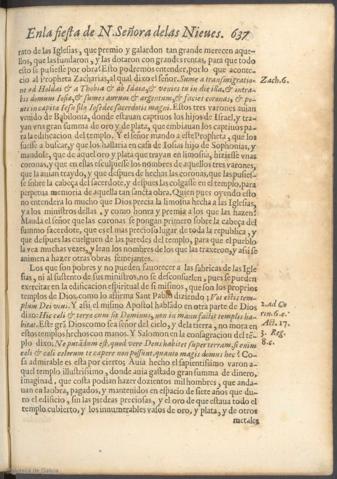 En la fiesta de N. Señora de las Nieues. 637
rato de las Iglesias, que premio y galardon tan grande merecen aque-
llos, que las fundaron, y las dotaron con grandes rentas, para que todo
esto se pusiesse por obra? Esto podremos entender, por lo que aconte-
cio al Propheta Zacharias, al qual dixo el señor. Sume a transmigratio-
ne ad Holdai & a Thobia & ab Idaia, & venies tu in die illa, & intra-
bis domum Iosiæ, & sumes aurum & argentum, & facies coronas & po-
nes in capite Iesu filij Iosedec sacerdotis magni. Estos tres varones auian
venido de Babilonia, donde estauan captiuos los hijos de Israel, y tra-
yan vna gran summa de oro y de plata, que embiauan los captiuos pa-
ra la edificacion del templo. Y el señor mando a este Propheta, que los
fuesse a buscar, y que los hallaria en casa de Iosias hijo de Sophonias, y
mandole, que de aquel oro y plata que trayan en limosna, hiziesse vnas
coronas, y que en ellas esculpiesse los nombres de aquellos tres varones,
que la auian traydo, y que despues de hechas las coronas, que las pusies-
se sobre la cabeça del sacerdote, y despues las colgasse en el templo, para
perpetua memoria de aquella tan sancta obra. Quien pues oyendo esto
no entendera lo mucho que Dios precia la limosna hecha a las Iglesias,
y a los ministros dellas, y como honra y premia a los que las hazen?
Manda el señor que las coronas se pongan primero sobre la cabeça del
summo sacerdote, que es el mas precioso lugar de toda la republica, y
que despues las cuelguen de las paredes del templo, para que el pueblo
la vea muchas vezes, y lean los nombres de los que las traxeron, y assi se
animen a hazer otras obras semejantes.
Los que son pobres y no pueden fauorecer a las fabricas de las Igle-
sias, ni al sustento de sus ministros, no se desconsuelen, pues se pueden
exercitar en la edificacion espiritual de si mismos, que son los proprios
templos de Dios, como lo afirma Sant Pablo diziendo; Vos estis tem-
plum Dei viui. Y assi el mismo Apostol hablando en otra parte de Dios
dixo: Hic cæli & terræ cum sit Dominus, non in manufactis templis ha-
bitat. Este gran Dios como sea señor del cielo, y dela tierra, no mora en
estos templos hechos con manos. Y Salomon en la consagracion del tẽ-
plo dixo. Ne putãdum est, quod vere Deus habitet super terram, si enim
cœli & cœli cœlorum te capere non possunt, quanto magis domus hæc? Co-
sa admirable es esta por cierto; Auia hecho el sapientissimo varon a-
quel templo illustrissimo, donde auia gastado gran summa de dinero,
imaginad, que costa podian hazer dozientos mil hombres, que anda-
uan en la obra, pagados, y mantenidos en espacio de siete años que du-
ro el edificio, sin las piedras preciosas, y el oro de que estaua todo el
templo cubierto, y los innumerables vasos de oro, y plata, y de otros
metales
Zach. 6.
2. Ad Co
rin. 6.
Act. 17.
3. Reg.
8.